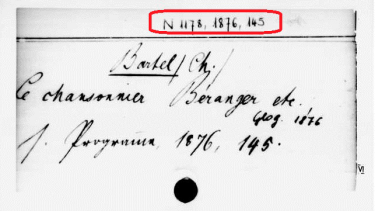 N 1178, 1876, 145
Bartel, Ch.
Le chansonnier Béranger etc.
Glog. 1876
s. Programm, 1876, 145.
VI